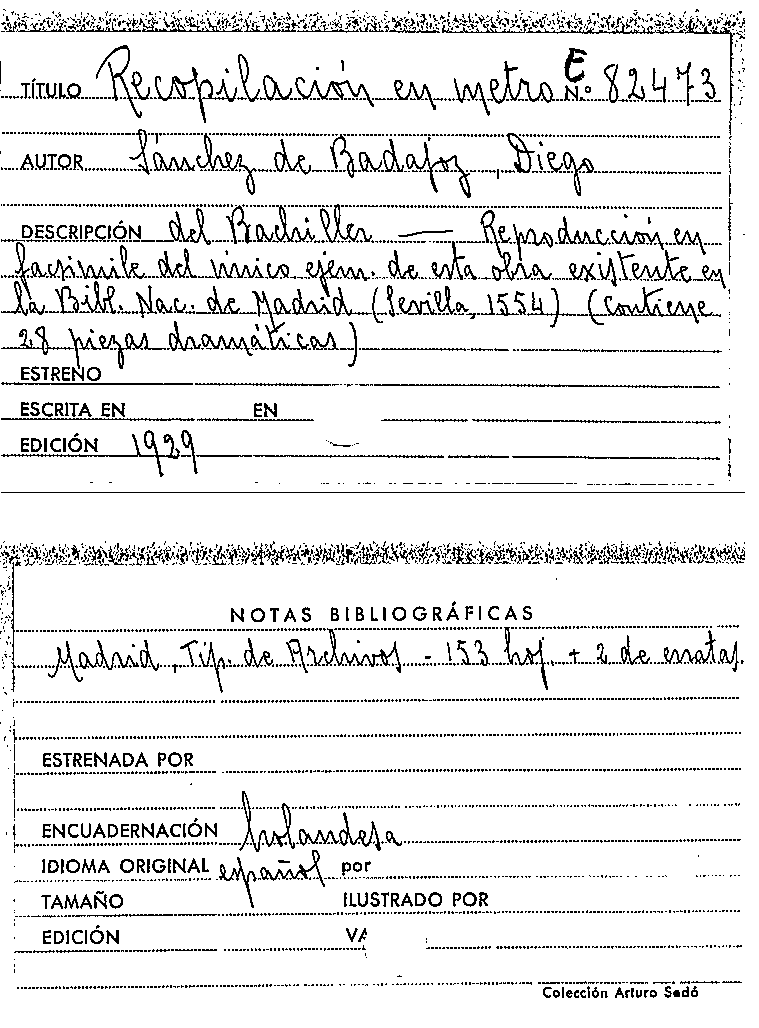 TÍTULO Recopilación en metro E N.º 82473
AUTOR Sánchez de Badajoz, Diego
DESCRIPCIÓN del Bachiller — Reproducción en
facsimile del único ejem. de esta obra existente en
la Bibl. Nac. de Madrid (Sevilla, 1554) (Contiene
28 piezas dramáticas)
ESTRENO
ESCRITA EN EN
EDICIÓN 1929
NOTAS BIBLIOGRÁFICAS
Madrid, Tip. de Archivos - 153 hoj. + 2 de erratas.
ESTRENADA POR
ENCUADERNACIÓN holandesa
IDIOMA ORIGINAL español por
TAMAÑO ILUSTRADO POR
EDICIÓN VA
Colección Arturo Sedó